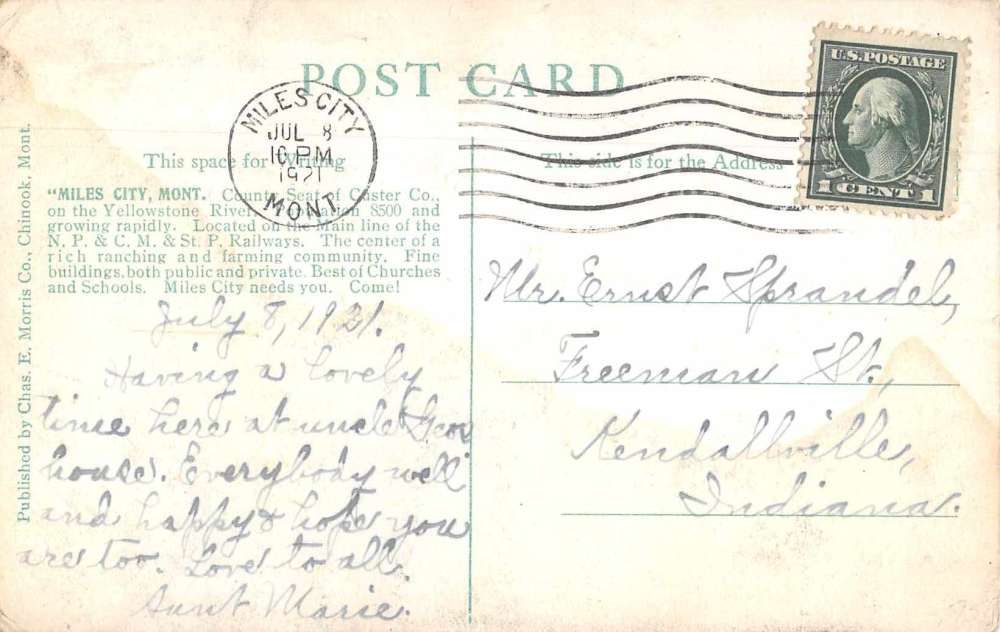 POST CARD
U.S. POSTAGE
1 CENT 1
MILES CITY
JUL 8
10 PM
1921
MONT.
This space for Writing
This side is for the Address
"MILES CITY, MONT. County Seat of Custer Co.,
on the Yellowstone River. 8500 and
growing rapidly. Located on the Main line of the
N. P. & C. M. & St. P. Railways. The center of a
rich ranching and farming community. Fine
buildings, both public and private. Best of Churches
and Schools. Miles City needs you. Come!
Published by Chas. E. Morris Co., Chinook, Mont.
July 8, 1921.
Having a lovely
time here at uncle Geo's
house. Everybody well
and happy & hope you
are too. Love to all.
Aunt Marie.
Mr. Ernst Sprandel,
Freeman St.,
Kendallville,
Indiana.